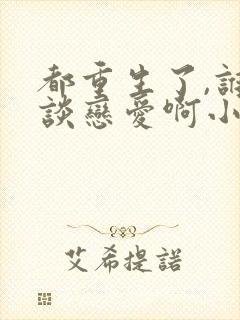 都重生了,誰
談戀愛啊小
艾希提諾